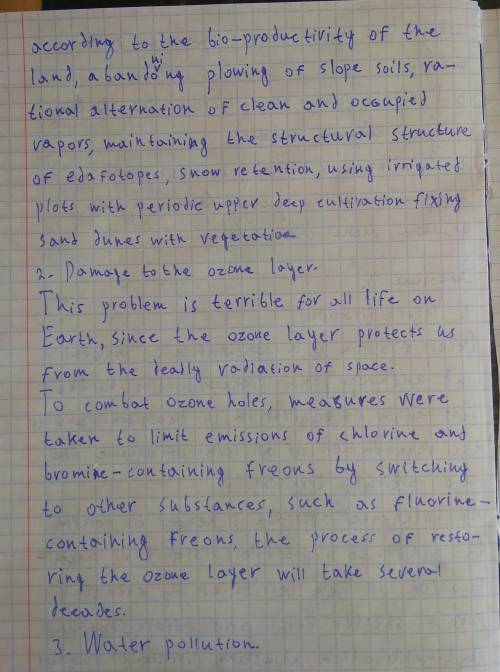 according to the bio-productivity of the
land, abandoning plowing of slope soils, ra-
tional alternation of clean and occupied
vapors, maintaining the structural structure
of edafotopes, snow retention, using irrigated
plots with periodic upper deep cultivation fixing
sand dunes with vegetation
2. Damage to the ozone layer.
This problem is terrible for all life on
Earth, since the ozone layer protects us
from the deadly radiation of space.
To combat ozone holes, measures were
taken to limit emissions of chlorine and
bromine-containing freons by switching
to other substances, such as fluorine-
containing freons, the process of resto-
ring the ozone layer will take several
decades.
3. Water pollution.